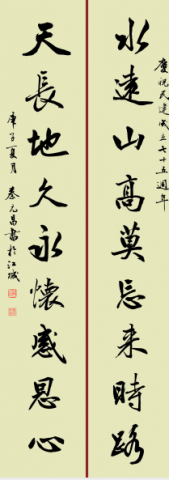 慶祝民建成立七十五週年
水遠山高莫忘来時路
天長地久永懷感恩心
庚子夏月 秦元昌書於江城